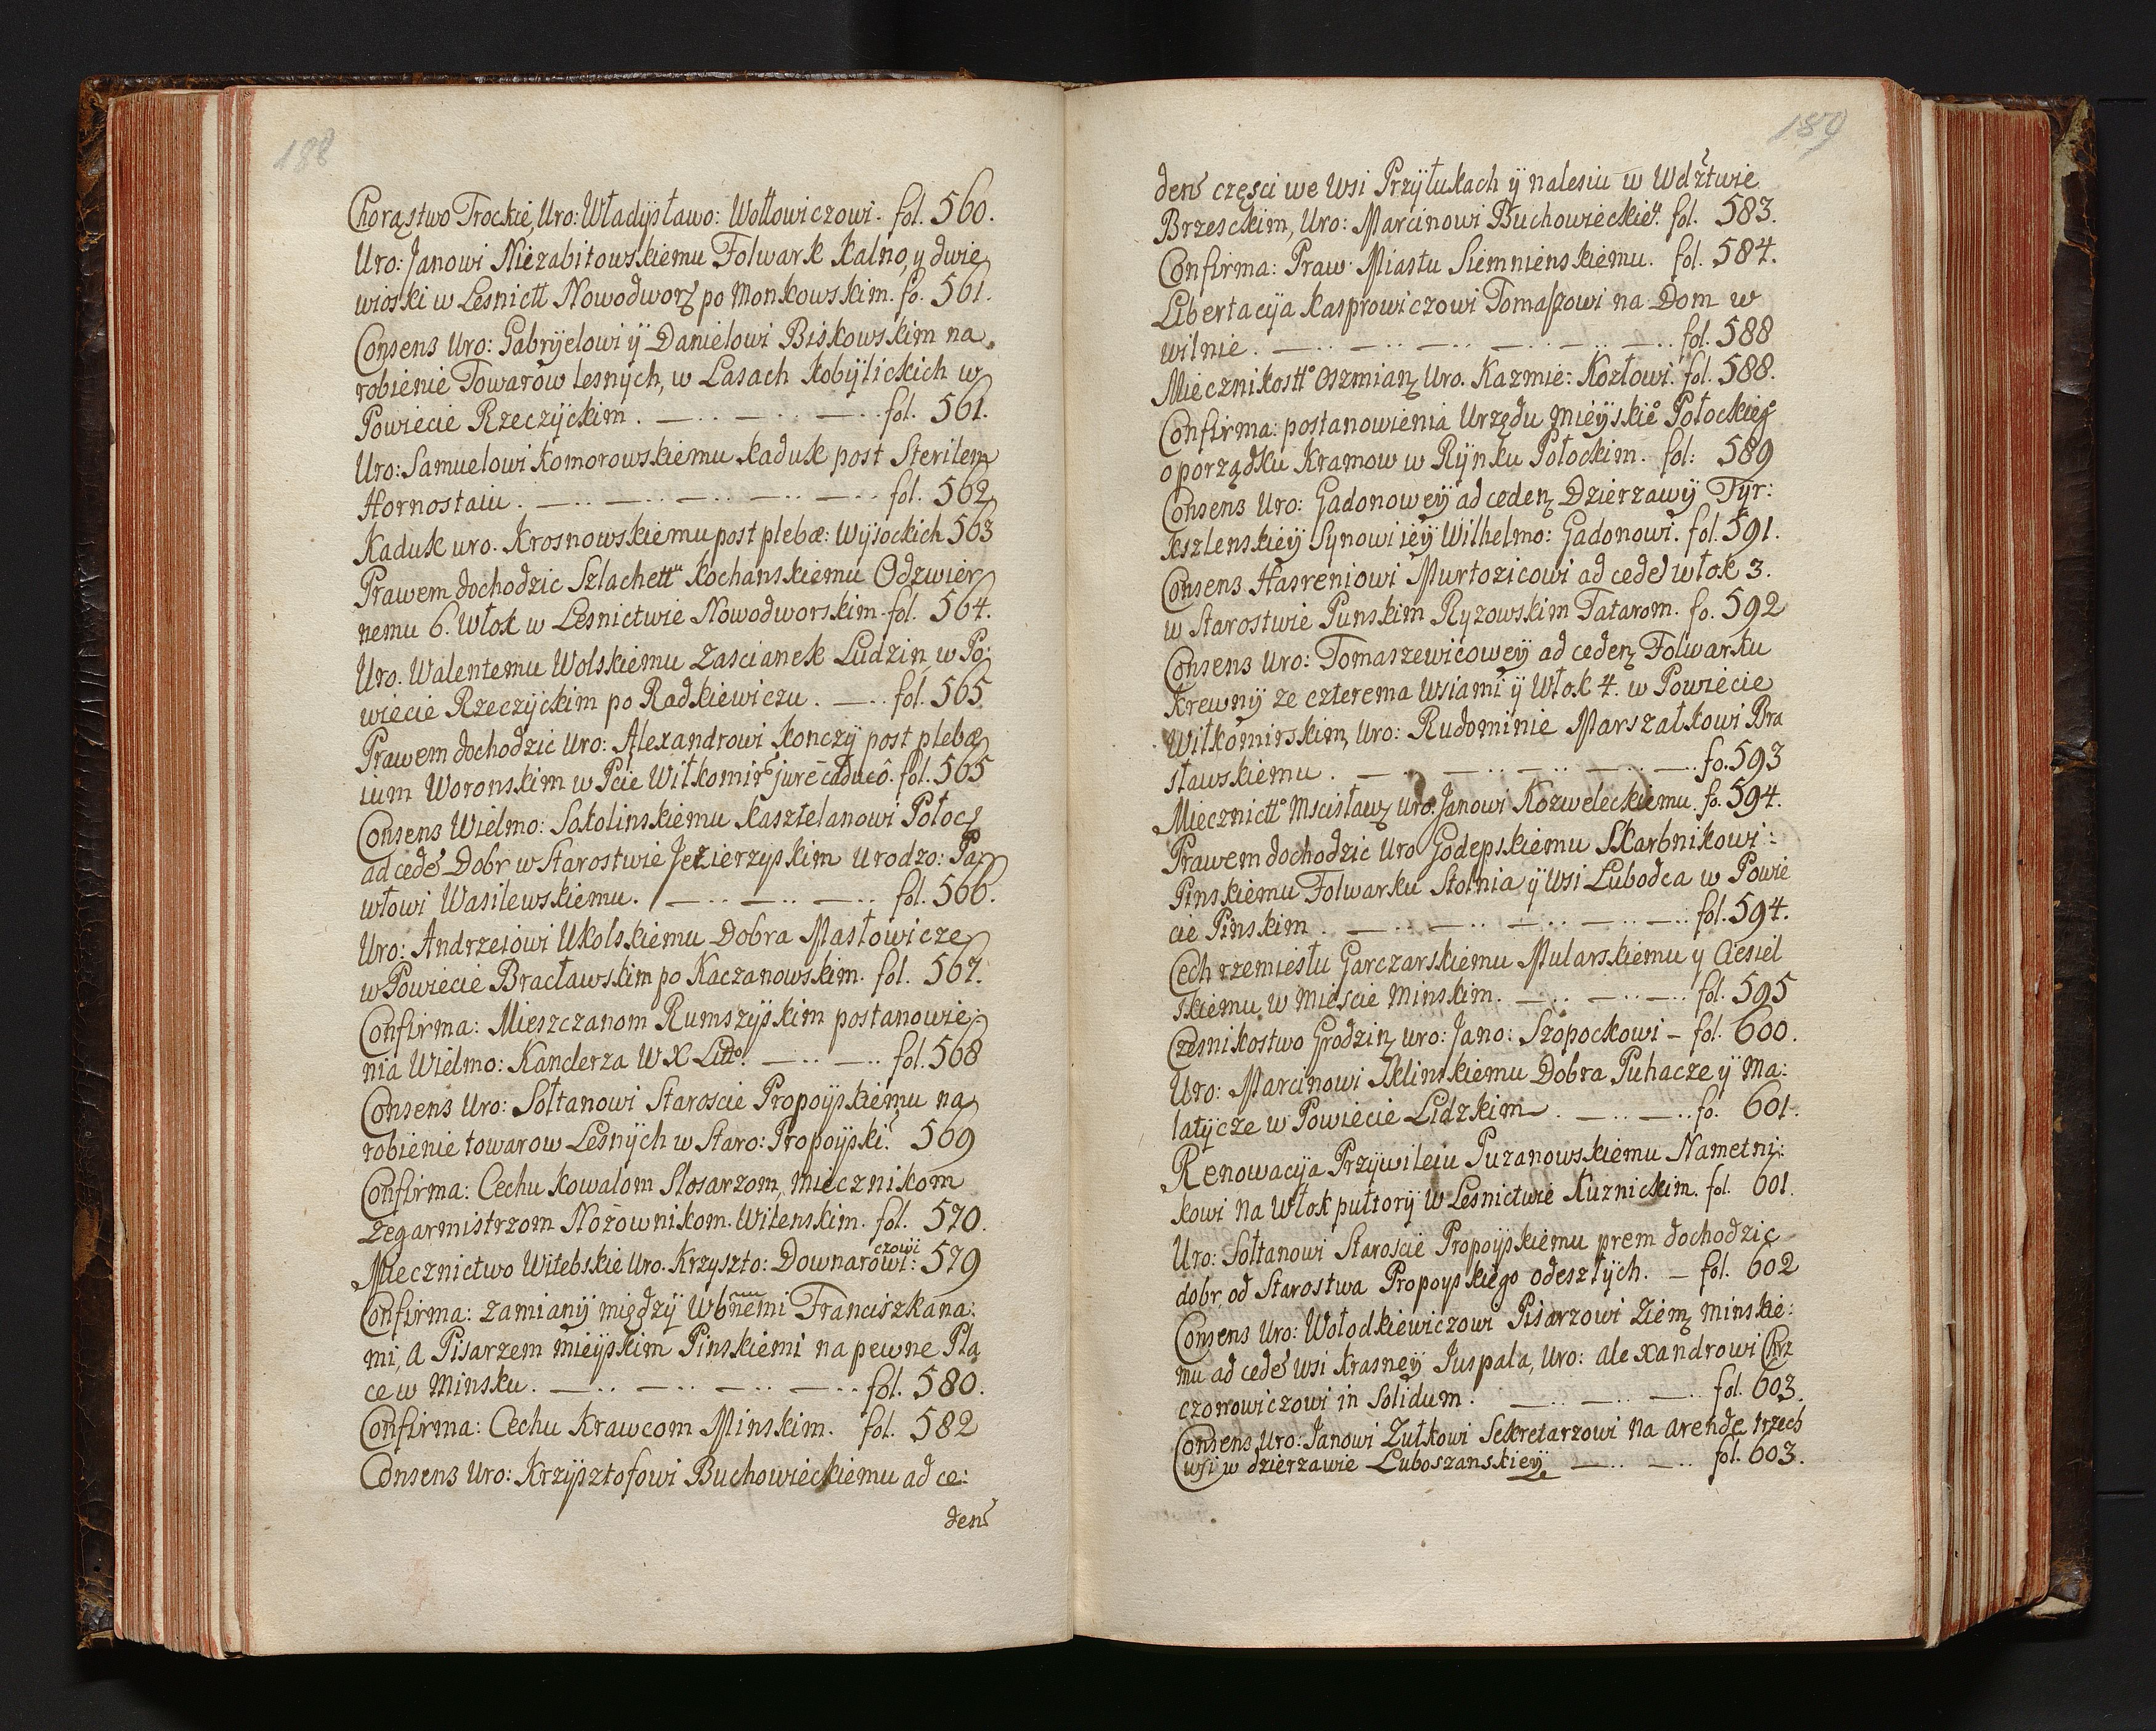 188
Chorąstwo Trockie, Uro: Władysławo: Wołłowiczowi. fol. 560.
Uro: Janowi Niezabitowskiemu Folwark Kalno, y dwie
wioski w Lesnictt Nowodworz po Monkowskim. fo. 561.
Consens Uro: Gabryelowi ÿ Danielowi Biskowskim na
robienie Towarow lesnÿch, w Lasach Kobÿlickich w
Powiecie Rzeczÿckim. fol. 561.
Uro: Samuelowi Komorowskiemu Kaduk post Sterilem
Hornostaiu. fol. 562
Kaduk uro. Krosnowskiemu post plebæ: Wÿsockich 563
Prawem dochodzic Szlachett Kochanskiemu Odzwier
nemu 6. Włok w Lesnictwie Nowodworskim. fol. 564.
Uro. Walentemu Wolskiemu Zascianek Ludzin w Po:
wiecie Rzeczÿckim po Radkiewiczu. fol. 565
Prawem dochodzic Uro: Alexandrowi Konczÿ post plebæ
ium Woronskim w Pcie Wiłkomir jure caduco. fol. 565
Consens Wielmo: Sokolinskiemu Kasztelanowi Połoc
ad cede Dobr w Starostwie Jezierzyskim Urodzo: Pa
włowi Wasilewskiemu. fol. 566.
Uro: Andrzeiowi Ukolskiemu Dobra Masłowicze
w Powiecie Bracławskim po Kaczanowskim. fol. 567.
Confirma: Mieszczanom Rumszÿskim postanowie:
nia Wielmo: Kanclerza W X Litto. fol. 568
Consens Uro: Sołtanowi Staroscie Propoÿskiemu na
robienie towarow Lesnÿch w Staro: Propoÿski. 569
Confirma: Cechu Kowalom Slosarzom, miecznikom
Zegarmistrzom Nozownikom. Wilenskim. fol. 570.
Miecznictwo Witebskie Uro. Krzyszto: Downarowi: czowi 579
Confirma: Zamianÿ międzÿ Wbnemi Franciszkana:
mi, a Pisarzem mieÿskim Pinskiemi na pewne Pla
ce w Minsku. fol. 580.
Confirma: Cechu Krawcom Minskim. fol. 582
Consens Uro: Krzÿsztofowi Buchowieckiemu ad ce:
den
189
den częsci we Wsi Przÿłukach ÿ nalesiu w Wdztwie
Brzesckim, Uro: Marcinowi Buchowieckie. fol. 583.
Confirma: Praw Miastu Siemnienskiemu. fol. 584.
Libertacÿa Kasprowiczowi Tomaszowi na Dom w
wilnie. fol. 588
Miecznikostt Oszmian Uro. Kazmie: Kozłowi. fol. 588.
Confirma: postanowienia Urzędu mieÿskie Połockieg
o porządku Kramow w Rÿnku Połockim. fol: 589
Consens Uro: Gadonoweÿ ad ceden Dzierzawÿ Tÿr:
kszlenskieÿ Synowi ieÿ Wilhelmo: Gadonowi. fol. 591.
Consens Hasreniowi Murtozicowi ad cede włok 3.
w Starostwie Punskim Ryzowskim Tatarom. fo. 592
Consens Uro: Tomaszewicoweÿ ad ceden Folwarku
Krewnÿ ze czterema Wsiami ÿ Włok 4. w Powiecie
Wiłkomirskim, Uro: Rudominie Marszałkowi Bra
sławskiemu. fo. 593
Miecznictt Mscisław Uro. Janowi Kozweleckiemu. fo. 594.
Prawem dochodzic Uro Godepskiemu Skarbnikowi:
Pinskiemu Folwarku Stolnia ÿ Wsi Lubodca w Powie
cie Pinskim. fol. 594.
Cech rzemiesłu Garczarskiemu Mularskiemu y Ciesiel
skiemu, w Miescie Minskim. fol. 595
Czesnikostwo Grodzin, uro: Jano: Szopockowi fol. 600.
Uro: Marcinowi Iklinskiemu Dobra Puhacze ÿ Ma:
latÿcze w Powiecie Lidzkim. fo. 601.
Renowacÿa Przÿwileiu Puzanowskiemu Nametni:
kowi na Włok pułtorÿ w Lesnictwie Kuznickim. fol. 601.
Uro: Sołtanowi Staroscie Propoÿskiemu prem dochodzic
dobr od Starostwa Propoyskiego odeszłÿch. fol. 602
Consens Uro: Wołodkiewiczowi Pisarzowi Ziem minskie:
mu ad cede wsi Krasneÿ Juspala, Uro: alexandrowi Chrz
czonowiczowi in Solidum. fol. 603.
Consens Uro: Janowi Zułkowi Sekretarzowi na arendę trzech
wsi w dzierzawie Luboszanskieÿ fol. 603.